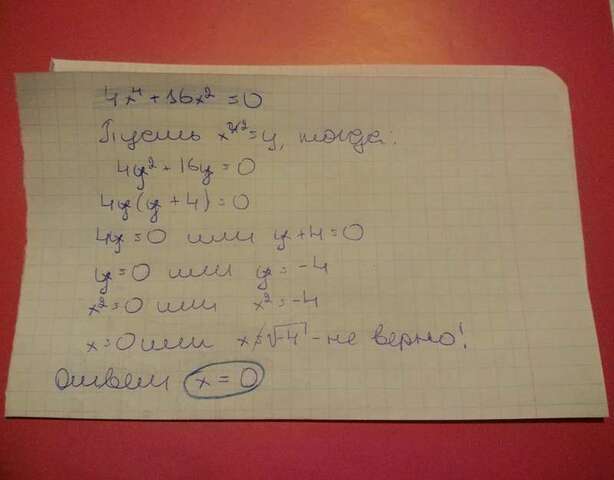 4x⁴ + 16x² = 0
Пусть x² = y, тогда:
4y² + 16y = 0
4y(y + 4) = 0
4y = 0 или y + 4 = 0
y = 0 или y = -4
x² = 0 или x² = -4
x = 0 или x = √-4 - не верно!
Ответ x = 0